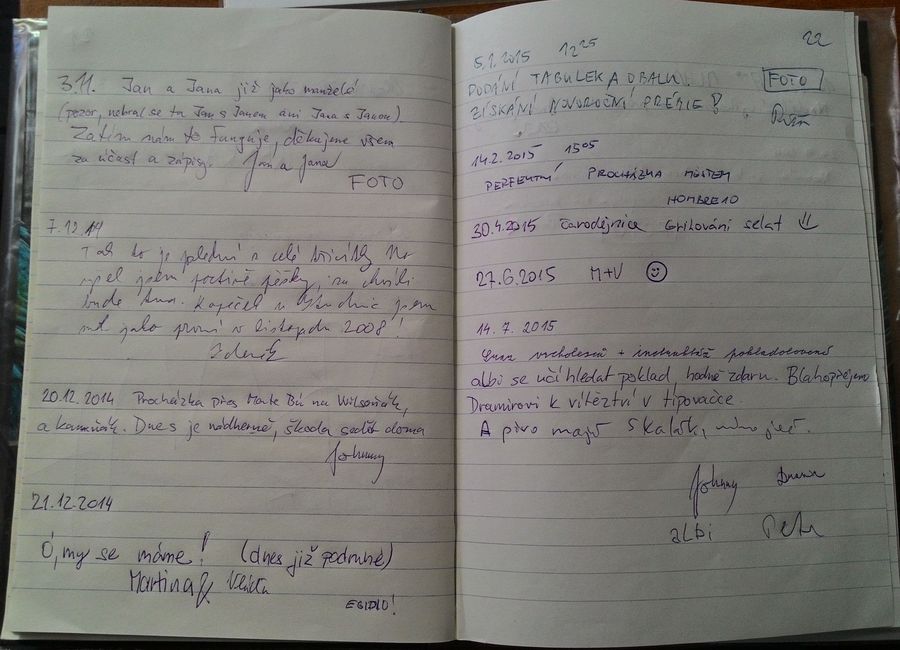 3.11. Jan a Jana již jako manželé
(pozor, nebral se ta Jan s Janem ani Jana s Janou)
Zatím nám to funguje, děkujeme všem
za účast a zápisy. Jan a Jana
FOTO
7.12.14
Tak to je poslední z celé
jsem poctivě pěšky, za chvíli
bude tma. jsem
měl jako první v listopadu 2008!
Zdeněk
20.12.2014 Procházka přes Malé Bú na Wilsoňák,
a kameňák. Dnes je nádherně, škoda sedět doma
Johnny
21.12.2014
Ó, my se máme! (dnes již podruhé)
Martina &
EGIDIO!
22
5.1.2015 12 25
PODÁNÍ TABULEK A OBALU.
FOTO
ZÍSKÁNÍ NOVOROČNÍ PRÉMIE!
14.2.2015 15 05
PERFEKTNÍ PROCHÁZKA MÓSTEM
HOMBRE10
30.4.2015 čarodějnice Grilování selat
27.6.2015 M+V
14.7.2015
+ pokladolovení
albi se učí hledat poklad hodně zdaru. Blahopřejeme
Dramirovi k vítěztví v tipovačce
A pivo mají Skaláci,
Johnny
albi Petr